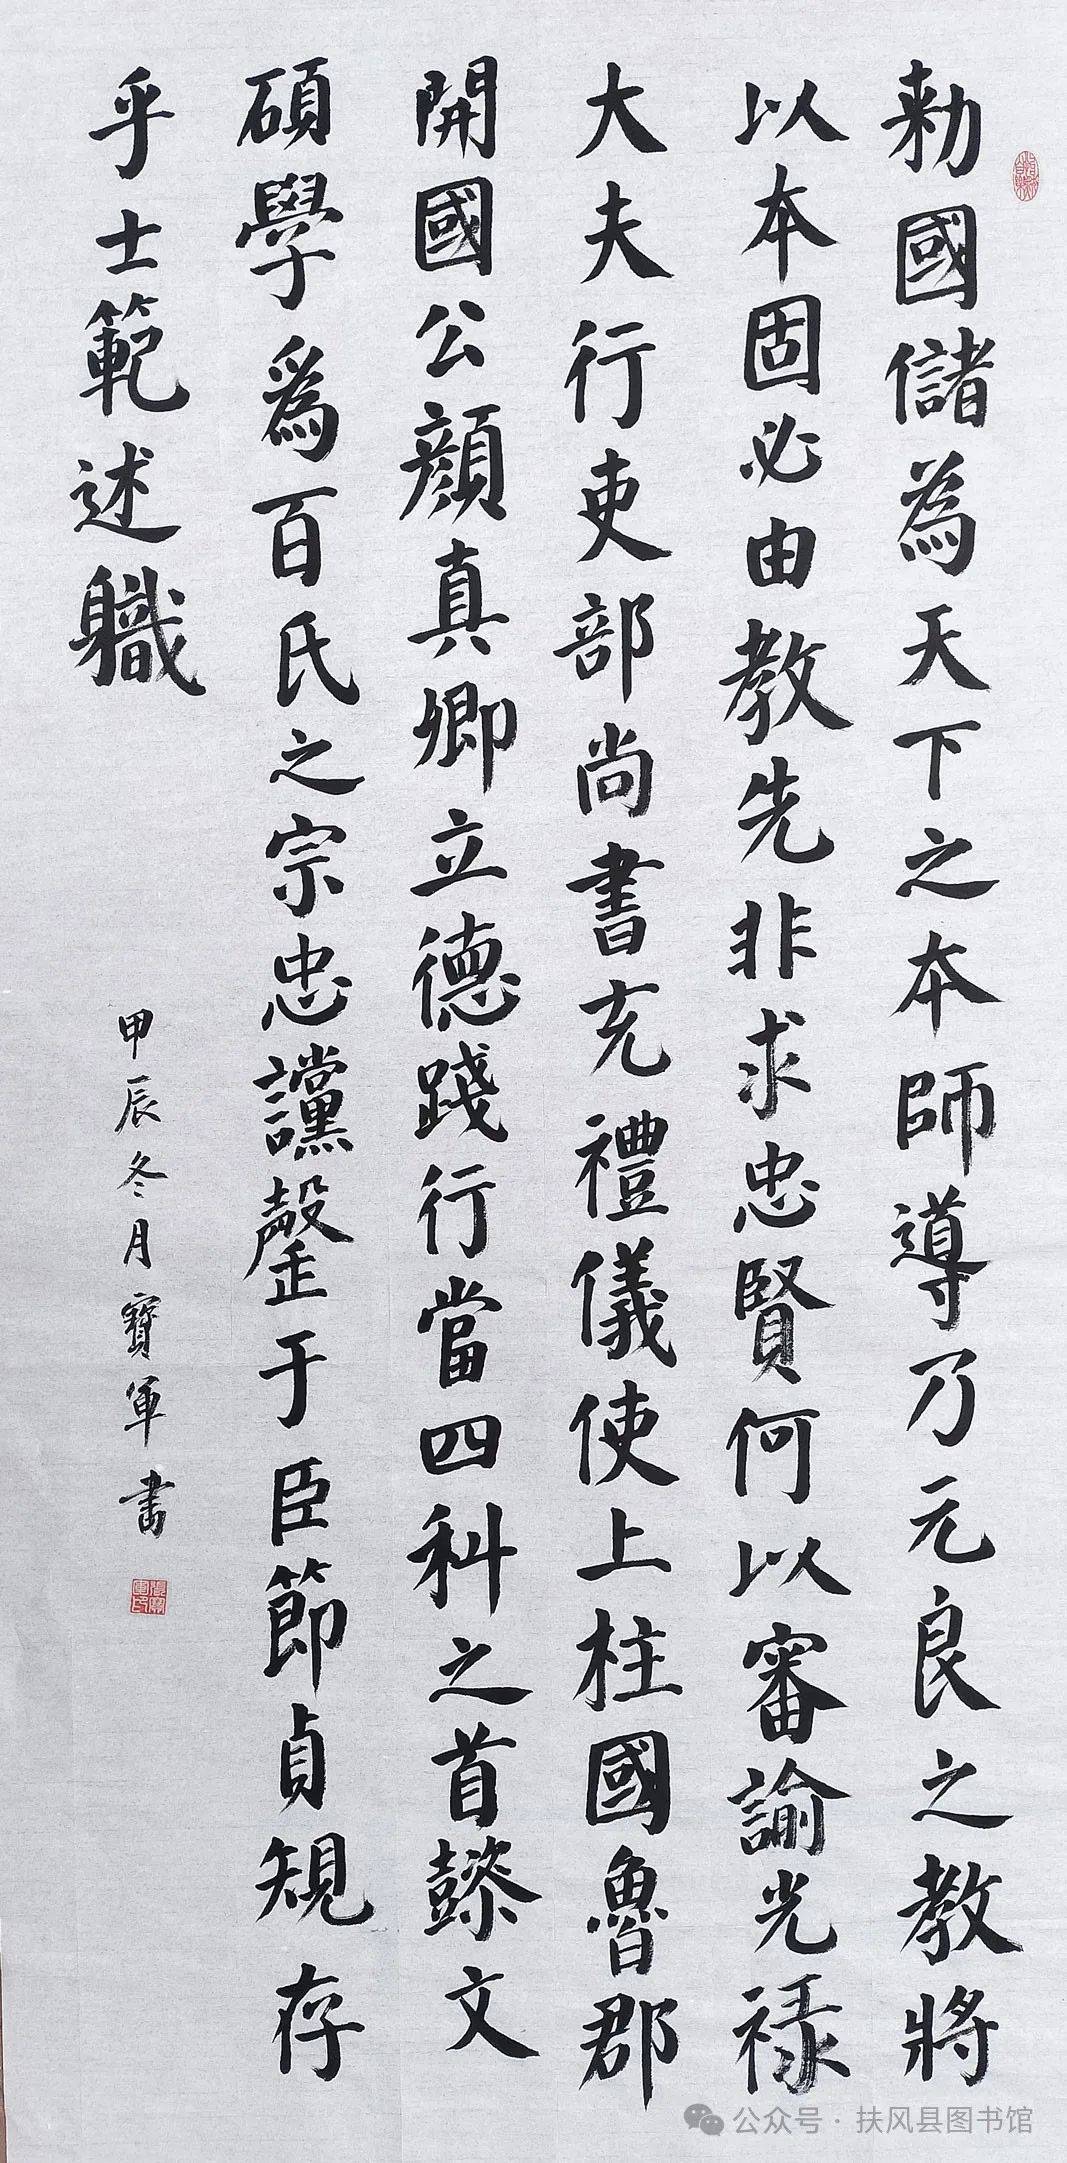 勑國儲為天下之本師導乃元良之教將
以本固必由教先非求忠賢何以審諭光禄
大夫行吏部尚書充禮儀使上柱國魯郡
開國公顔真卿立德踐行當四科之首懿文
碩學爲百氏之宗忠讜罄于臣節貞規存
乎士範述職
甲辰冬月寶軍書
公众号·扶风县图书馆